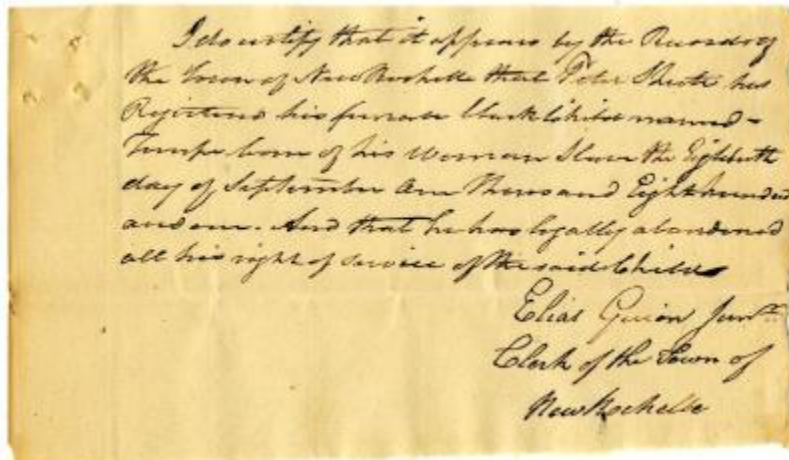 I do certify that it appears by the Records of
the Town of New Rochelle that Peter has
Registered his female black Child named
born of his Woman Slave the Eighteenth
day of September One Thousand Eight hundred
and one. And that he has legally abandoned
all his right of service of the said Child
Elias Guion Junr
Clerk of the Town of
New Rochelle